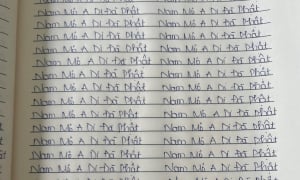 Nam Mô A Di Đà Phật Nam Mô A Di Đà Phật
Nam Mô A Di Đà Phật Nam Mô A Di Đà Phật
Nam Mô A Di Đà Phật Nam Mô A Di Đà Phật
Nam Mô A Di Đà Phật Nam Mô A Di Đà Phật
Nam Mô A Di Đà Phật Nam Mô A Di Đà Phật
Nam Mô A Di Đà Phật Nam Mô A Di Đà Phật
Nam Mô A Di Đà Phật Nam Mô A Di Đà Phật
Nam Mô A Di Đà Phật Nam Mô A Di Đà Phật
Nam Mô A Di Đà Phật Nam Mô A Di Đà Phật
Nam Mô A Di Đà Phật Nam Mô A Di Đà Phật
Nam Mô A Di Đà Phật Nam Mô A Di Đà Phật
Nam Mô A Di Đà Phật Nam Mô A Di Đà Phật
Nam Mô A Di Đà Phật Nam Mô A Di Đà Phật